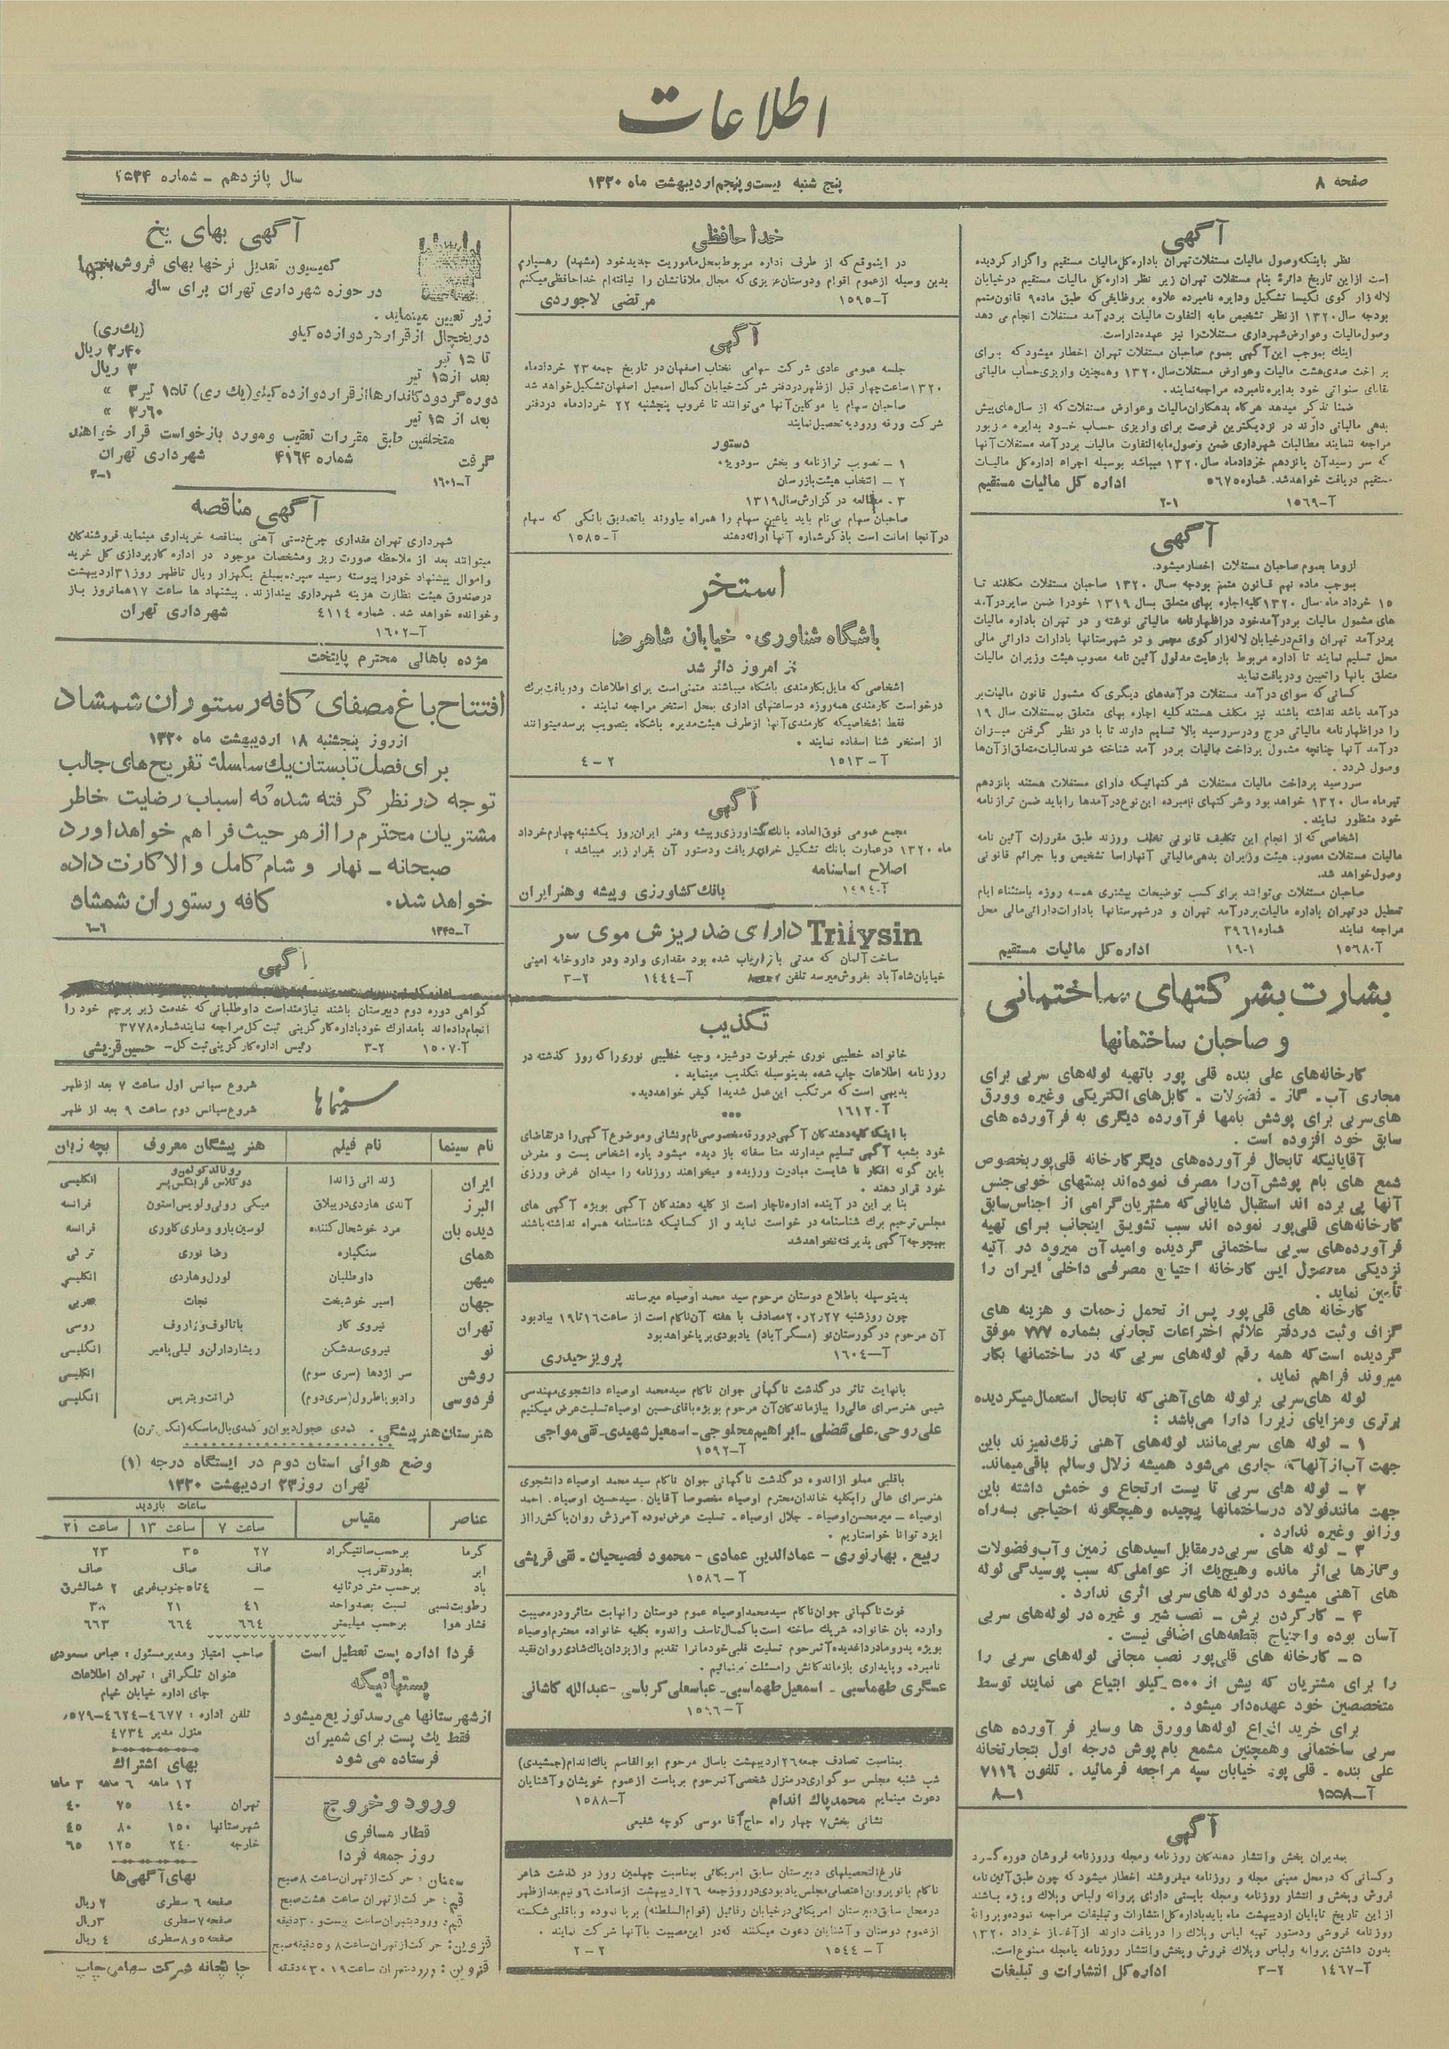 اطلاعات
صفحه ۸
پنج شنبه بیست و پنجم اردیبهشت ماه ۱۳۲۰
سال پانزدهم ـ شماره ۴۵۳۴
آگهی
نظر باینکه وصول مالیات مستغلات تهران باداره کل مالیات مستقیم واگزار گردیده
است از این تاریخ دائرهٔ بنام مستغلات تهران زیر نظر اداره کل مالیات مستقیم در خیابان
لاله زار کوی نکیسا تشکیل و دایره نامبرده علاوه بر وظایفی که طبق ماده ۹ قانون متمم
بودجه سال ۱۳۲۰ از نظر تشخیص مابه التفاوت مالیات بر درآمد مستغلات انجام می دهد
وصول مالیات و عوارض شهرداری مستغلات را نیز عهده دار است.
اینك بموجب این آگهی بعموم صاحبان مستغلات تهران اخطار میشود که برای
پرداخت صدی هشت مالیات و عوارض مستغلات سال ۱۳۲۰ و همچنین واریزی حساب مالیاتی
بقایای سنواتی خود بدایره نامبرده مراجعه نمایند.
ضمناً تذکر میدهد هرگاه بدهکاران مالیات و عوارض مستغلات که از سال های پیش
بدهی مالیاتی دارند در نزدیکترین فرصت برای واریزی حساب خود بدایره مزبور
مراجعه ننمایند مطالبات شهرداری ضمن وصول مابه التفاوت مالیات بر درآمد مستغلات آنها
که سر رسید آن پانزدهم خرداد ماه سال ۱۳۲۰ میباشد بوسیله اجراء اداره کل مالیات
مستقیم دریافت خواهد شد. شماره ۵۶۷۵ اداره کل مالیات مستقیم
آ-۱۵۶۹ ۲-۱
آگهی
لزوماً بعموم صاحبان مستغلات اخطار میشود.
بموجب ماده نهم قانون متمم بودجه سال ۱۳۲۰ صاحبان مستغلات مکلفند تا
۱۵ خرداد ماه سال ۱۳۲۰ کلیه اجاره بهای متعلق بسال ۱۳۱۹ خود را ضمن سایر درآمد
های مشمول مالیات بر درآمد خود در اظهارنامه مالیاتی نوشته و در تهران باداره مالیات
بر درآمد تهران واقع در خیابان لاله زار کوی مهسر و در شهرستانها بادارات دارائی مالی
محل تسلیم نمایند تا اداره مربوط با رعایت مدلول آئین نامه مصوب هیئت وزیران مالیات
متعلق بانها را تعیین و دریافت نماید
کسانی که سوای درآمد مستغلات درآمدهای دیگری که مشمول قانون مالیات بر
درآمد باشد نداشته باشند نیز مکلف هستند کلیه اجاره بهای متعلق بمستغلات سال ۱۹
را در اظهارنامه مالیاتی درج و در سر رسید بالا تسلیم دارند تا با در نظر گرفتن میزان
درآمد آنها چنانچه مشمول پرداخت مالیات بر درآمد شناخته شوند مالیات متعلق از آن‌ها
وصول گردد.
سر رسید پرداخت مالیات مستغلات شرکتهائیکه دارای مستغلات هستند پانزدهم
تیرماه سال ۱۳۲۰ خواهد بود و شرکتهای نامبرده این نوع درآمدها را باید ضمن ترازنامه
خود منظور نمایند.
اشخاصی که از انجام این تکلیف قانونی تخلف ورزند طبق مقررات آئین نامه
مالیات مستغلات مصوب هیئت وزیران بدهی مالیاتی آنها راساً تشخیص و با جرائم قانونی
وصول خواهد شد.
صاحبان مستغلات می‌توانند برای کسب توضیحات بیشتری همه روزه باستثناء ایام
تعطیل در تهران باداره مالیات بر درآمد تهران و در شهرستانها بادارات دارائی مالی محل
مراجعه نمایند شماره ۳۹۶۱
آ-۱۵۶۸ ۱۹-۱ اداره کل مالیات مستقیم
بشارت بشرکتهای ساختمانی
و صاحبان ساختمانها
کارخانه‌های علی بنده قلی پور با تهیه لوله‌های سربی برای
مجاری آب ـ گاز ـ فضولات ـ کابل‌های الکتریکی و غیره و ورق
های سربی برای پوشش بامها فرآورده دیگری به فرآورده های
سابق خود افزوده است.
آقایانیکه تابحال فرآورده‌های دیگر کارخانه قلی‌پور بخصوص
شمع های بام پوش آن را مصرف نموده‌اند بمنتهای خوبی جنس
آنها پی برده اند استقبال شایانی که مشتریان گرامی از اجناس سابق
کارخانه‌های قلی‌پور نموده اند سبب تشویق اینجانب برای تهیه
فرآورده‌های سربی ساختمانی گردیده و امید آن میرود در آتیه
نزدیکی محصول این کارخانه احتیاج مصرفی داخلی ایران را
تأمین نماید.
کارخانه های قلی‌پور پس از تحمل زحمات و هزینه های
گزاف و ثبت در دفتر علائم اختراعات تجارتی بشماره ۷۷۷ موفق
گردیده است که همه رقم لوله‌های سربی که در ساختمانها بکار
میروند فراهم نماید.
لوله های سربی بر لوله های آهنی که تابحال استعمال میگردیده
برتری و مزایای زیر را دارا می‌باشد:
۱ ـ لوله های سربی مانند لوله‌های آهنی زنگ نمیزند باین
جهت آب از آنها که جاری می‌شود همیشه زلال و سالم باقی میماند.
۲ ـ لوله های سربی تا بیست ارتجاع و خمش داشته باین
جهت مانند فولاد در ساختمانها پیچیده و هیچگونه احتیاجی به سه راه
و زانو و غیره ندارد.
۳ ـ لوله های سربی در مقابل اسیدهای زمین و آب و فضولات
و گازها بی‌اثر مانده و هیچ یك از عواملی که سبب پوسیدگی لوله
های آهنی میشود در لوله‌های سربی اثری ندارد.
۴ ـ کار کردن برش ـ نصب شیر و غیره در لوله‌های سربی
آسان بوده و احتیاج بقطعه‌های اضافی نیست.
۵ ـ کارخانه های قلی‌پور نصب مجانی لوله‌های سربی را
را برای مشتریان که بیش از ۵۰۰ کیلو ابتیاع می نمایند توسط
متخصصین خود عهده‌دار میشود.
برای خرید انواع لوله‌ها و ورق ها و سایر فرآورده های
سربی ساختمانی و همچنین مشمع بام پوش درجه اول بتجارتخانه
علی بنده ـ قلی پور خیابان سپه مراجعه فرمائید. تلفون ۷۱۱۶
آ-۱۵۵۸ ۸-۱
آگهی
بمدیران پخش و انتشار دهندگان روزنامه و مجله و روزنامه فروشان دوره گرد
و کسانی که در محل معینی مجله و روزنامه میفروشند اخطار میشود که چون طبق آئین نامه
فروش و پخش و انتشار روزنامه و مجله بایستی دارای پروانه و لباس و پلاك ویژه باشند
از این تاریخ تا پایان اردیبهشت ماه باید باداره کل انتشارات و تبلیغات مراجعه نموده و پروانهٔ
روزنامه فروشی و دستور تهیه لباس و پلاك را دریافت دارند از آغاز خرداد ۱۳۲۰
بدون داشتن پروانه و لباس و پلاك فروش و پخش و انتشار روزنامه یا مجله ممنوع است.
آ-۱۴۶۷ ۳-۲ اداره کل انتشارات و تبلیغات
خدا حافظی
در اینموقع که از طرف اداره مربوط بمحل ماموریت جدید خود (مشهد) رهسپارم
بدین وسیله از عموم اقوام و دوستان عزیزی که مجال ملاقاتشان را نیافته‌ام خداحافظی میکنم
آ-۱۵۹۵ مرتضی لاجوردی
آگهی
جلسه عمومی عادی شرکت سهامی نختاب اصفهان در تاریخ جمعه ۲۳ خرداد ماه
۱۳۲۰ ساعت چهار قبل از ظهر در دفتر شرکت خیابان کمال اسمعیل اصفهان تشکیل خواهد شد
صاحبان سهام یا موکلین آنها می‌توانند تا غروب پنجشنبه ۲۲ خرداد ماه در دفتر
شرکت ورقه ورودیه تحصیل نمایند
دستور
۱ ـ تصویب ترازنامه و بخش سود ویژه
۲ ـ انتخاب هیئت بازرسان
۳ ـ مطالعه در گزارش سال ۱۳۱۹
صاحبان سهام بی‌نام باید یا عین سهام را همراه بیاورند یا تصدیق بانکی که سهام
در آنجا امانت است با ذکر شماره آنها ارائه دهند آ-۱۵۸۵
استخر
باشگاه شناوری، خیابان شاهرضا
از امروز دائر شد
اشخاصی که مایل بکارمندی باشگاه میباشند متمنی است برای اطلاعات و دریافت برك
درخواست کارمندی همه روزه در ساعتهای اداری بمحل استخر مراجعه نمایند.
فقط اشخاصیکه کارمندی آنها از طرف هیئت مدیره باشگاه بتصویب برسد میتوانند
از استخر شنا استفاده نمایند.
آ-۱۵۱۳ ۲-۴
آگهی
مجمع عمومی فوق العاده بانك کشاورزی و پیشه و هنر ایران روز یکشنبه چهارم خرداد
ماه ۱۳۲۰ در عمارت بانك تشکیل خواهد یافت و دستور آن بقرار زیر میباشد:
اصلاح اساسنامه
آ-۱۴۹۴ بانك کشاورزی و پیشه و هنر ایران
Trilysin دارای ضد ریزش موی سر
ساخت آلمان که مدتی بازار نایاب شده بود مقداری وارد و در داروخانه امینی
خیابان شاه آباد بفروش میرسد تلفن آ-۱۴۴۴ ۲-۳
تکذیب
خانواده خطیبی نوری خبر فوت دوشیزه وجیه خطیبی نوری را که روز گذشته در
روزنامه اطلاعات چاپ شده بدینوسیله تکذیب مینماید.
بدیهی است که مرتکب این عمل شدیداً کیفر خواهد دید.
آ-۱۶۱۲ ***
با اینکه کلیه دهندگان آگهی در ورقه مخصوصی نام و نشانی و موضوع آگهی را در تقاضای
خود بشعبه آگهی تسلیم میدارند متأسفانه باز دیده میشود پاره اشخاص پست و مغرض
باین گونه افکار ناشایست مبادرت ورزیده و میخواهند روزنامه را میدان غرض ورزی
خود قرار دهند.
بنا بر این در آینده اداره ناچار است از کلیه دهندگان آگهی بویژه آگهی های
مجلس ترحیم برك شناسنامه درخواست نماید و از کسانیکه شناسنامه همراه نداشته باشند
بهیچوجه آگهی پذیرفته نخواهد شد
بدینوسیله باطلاع دوستان مرحوم سید محمد اوصیاء میرساند
چون روز شنبه ۲۰/۲/۲۷ مصادف با هفته آن ناکام است از ساعت ۱۶ تا ۱۹ بیادبود
آن مرحوم در گورستان نو (مسگر آباد) یادبودی برپا خواهد بود
آ-۱۶۰۴ پرویز حیدری
با نهایت تاثر درگذشت ناگهانی جوان ناکام سید محمد اوصیاء دانشجوی مهندسی
شیمی هنرسرای عالی را ببازماندگان آن مرحوم بویژه باقای حسین اوصیاء تسلیت عرض میکنیم
علی روحی ـ علی تفضلی ـ ابراهیم محلوجی ـ اسمعیل شهیدی ـ تقی مواجی
آ-۱۵۹۲
با قلبی مملو از اندوه درگذشت ناگهانی جوان ناکام سید محمد اوصیاء دانشجوی
هنرسرای عالی را بکلیه خاندان محترم اوصیاء مخصوصاً آقایان. سید حسین اوصیاء ـ احمد
اوصیاء ـ میر محسن اوصیاء ـ جلال اوصیاء ـ تسلیت عرض نموده آمرزش روان پاکش را از
ایزد توانا خواستاریم.
ربیع ـ بهار نوری ـ عمادالدین عمادی ـ محمود فصیحیان ـ نقی قریشی
آ-۱۵۸۶
فوت ناگهانی جوان ناکام سید محمد اوصیاء عموم دوستان را نهایت متاثر و در مصیبت
وارده بآن خانواده شریك ساخته است با کمال تاسف و اندوه بکلیه خانواده محترم اوصیاء
بویژه پدر و مادر داغدیده آنمرحوم تسلیت قلبی خود مانرا تقدیم و از یزدان پاك شادی روان فقید
نامبرده و پایداری بازماندگانش را مسئلت مینمائیم.
عسگری طهماسبی ـ اسمعیل طهماسبی ـ عباسعلی کرباسی ـ عبدالله کاشانی
آ-۱۵۹۶
بمناسبت تصادف جمعه ۲۶ اردیبهشت با سال مرحوم ابوالقاسم پاك اندام (جمشیدی)
شب شنبه مجلس سوگواری در منزل شخصی آنمرحوم برپاست از عموم خویشان و آشنایان
دعوت مینمایم محمد پاك اندام آ-۱۵۸۸
نشانی بخش ۷ چهار راه حاج آقا موسی کوچه شفیعی
فارغ التحصیلهای دبیرستان سابق امریکائی بمناسبت چهلمین روز درگذشت شاعر
ناکام بانو پروین اعتصامی مجلس یادبودی در روز جمعه ۲۶ اردیبهشت از ساعت ۶ و نیم بعد از ظهر
در محل سابق دبیرستان امریکائی در خیابان رفائیل (قوام السلطنه) برپا نموده و با قلبی شکسته
از عموم دوستان و آشنایان دعوت میکنند که در این مصیبت با آنها شرکت نمایند.
آ-۱۵۴۴ ۲-۲
آگهی بهای یخ
کمیسیون تعدیل نرخها بهای فروش یخ را
در حوزه شهرداری تهران برای سال
زیر تعیین مینماید.
در یخچال از قرار هر دوازده کیلو (یك ری)
تا ۱۵ تیر ۲٫۴۰ ریال
بعد از ۱۵ تیر ۳ ریال
دوره گرد و دکاندارها از قرار دوازده کیلو (یك ری) تا ۱۵ تیر ۳ »
بعد از ۱۵ تیر ۳٫۶۰ »
متخلفین طبق مقررات تعقیب و مورد بازخواست قرار خواهند
گرفت شماره ۴۱۶۴ شهرداری تهران
آ-۱۶۰۱ ۲-۱
آگهی مناقصه
شهرداری تهران مقداری چرخ دستی آهنی بمناقصه خریداری مینماید فروشندگان
میتوانند بعد از ملاحظه صورت ریز و مشخصات موجود در اداره کارپردازی کل خرید
و اموال پیشنهاد خود را پیوسته رسید سپرده بمبلغ یکهزار ریال تا ظهر روز ۳۱ اردیبهشت
در صندوق هیئت نظارت هزینه شهرداری بیندازند. پیشنهاد ها ساعت ۱۷ همانروز باز
و خوانده خواهد شد. شماره ۴۱۱۴ شهرداری تهران
آ-۱۶۰۲
مژده باهالی محترم پایتخت
افتتاح باغ مصفای کافه رستوران شمشاد
از روز پنجشنبه ۱۸ اردیبهشت ماه ۱۳۲۰
برای فصل تابستان یك سلسله تفریح‌های جالب
توجه در نظر گرفته شده که اسباب رضایت خاطر
مشتریان محترم را از هر حیث فراهم خواهد اورد
صبحانه ـ نهار و شام کامل و الاکارت داده
خواهد شد. کافه رستوران شمشاد
آ-۱۴۴۵ ۶-۶
آگهی
گواهی دوره دوم دبیرستان باشند نیازمند است داوطلبانی که خدمت زیر پرچم خود را
انجام داده‌اند با مدارك خود باداره کارگزینی ثبت کل مراجعه نمایند شماره ۳۷۷۸
آ-۱۵۰۷ ۳-۲ رئیس اداره کارگزینی ثبت کل ـ حسین قریشی
سینماها
شروع سیانس اول ساعت ۷ بعد از ظهر
شروع سیانس دوم ساعت ۹ بعد از ظهر
نام سینما نام فیلم هنر پیشگان معروف بچه زبان
ایران زندانی زاندا رونالد کولمن و دوگلاس فربنکس پسر انگلیسی
البرز آندی هاردی در ییلاق میکی رونی و لویس استون فرانسه
دیده بان مرد خوشحال کننده لوسین بارو و ماری گلوری فرانسه
همای سنگپاره رضا نوری ترکی
میهن داوطلبان لورل و هاردی انگلیسی
جهان اسیر خوشبخت نجات عربی
تهران نیروی کار باتالوف و زاروف روسی
نو نیروی سدشکن ریشارد ارلن و لیلی پامیر انگلیسی
روشن سر اژدها (سری سوم) انگلیسی
فردوسی رادیو پاطرول (سری دوم) گرانت ویترس انگلیسی
هنرستان هنرپیشگی ـ کمدی عجول دیوان و کمدی بال ماسکه
وضع هوائی استان دوم در ایستگاه درجه (۱)
تهران روز ۲۳ اردیبهشت ۱۳۲۰
عناصر مقیاس ساعات بازدید
ساعت ۷ ساعت ۱۳ ساعت ۲۱
گرما برحسب سانتیگراد ۲۷ ۳۵ ۲۳
ابر بطور تقریب صاف صاف صاف
باد برحسب متر در ثانیه — ۴ تا ۵ جنوب غربی ۲ شمالشرق
رطوبت نسبی نسبت بصد واحد ۴۱ ۲۱ ۳۸
فشار هوا برحسب میلیمتر ۶۶۴ ۶۶۴ ۶۶۳
فردا اداره پست تعطیل است
پستهائیکه
از شهرستانها می‌رسد توزیع میشود
فقط یك پست برای شمیران
فرستاده می شود
ورود و خروج
قطار مسافری
روز جمعه فردا
سمنان: حرکت از تهران ساعت ۸ صبح
قم: حرکت از تهران ساعت هشت صبح
قم: ورود بتهران ساعت بیست و ۳۰ دقیقه
قزوین: حرکت از تهران ساعت ۸ و ۵ دقیقه صبح
قزوین: ورود بتهران ساعت ۱۹ و ۳۰ دقیقه
صاحب امتیاز و مدیر مسئول: عباس مسعودی
عنوان تلگرافی: تهران اطلاعات
جای اداره خیابان خیام
تلفن اداره: ۴۶۷۷-۴۶۲۴-۵۷۹
منزل مدیر ۴۷۳۴
بهای اشتراك
۱۲ ماهه ۶ ماهه ۳ ماهه
تهران ۱۴۰ ۷۵ ۴۰
شهرستانها ۱۵۰ ۸۰ ۴۵
خارجه ۲۴۰ ۱۲۵ ۶۵
بهای آگهی‌ها
صفحه ۶ سطری ۲ ریال
صفحه ۷ سطری ۳ ریال
صفحه ۵ و ۸ سطری ۴ ریال
چاپخانه شرکت سهامی چاپ